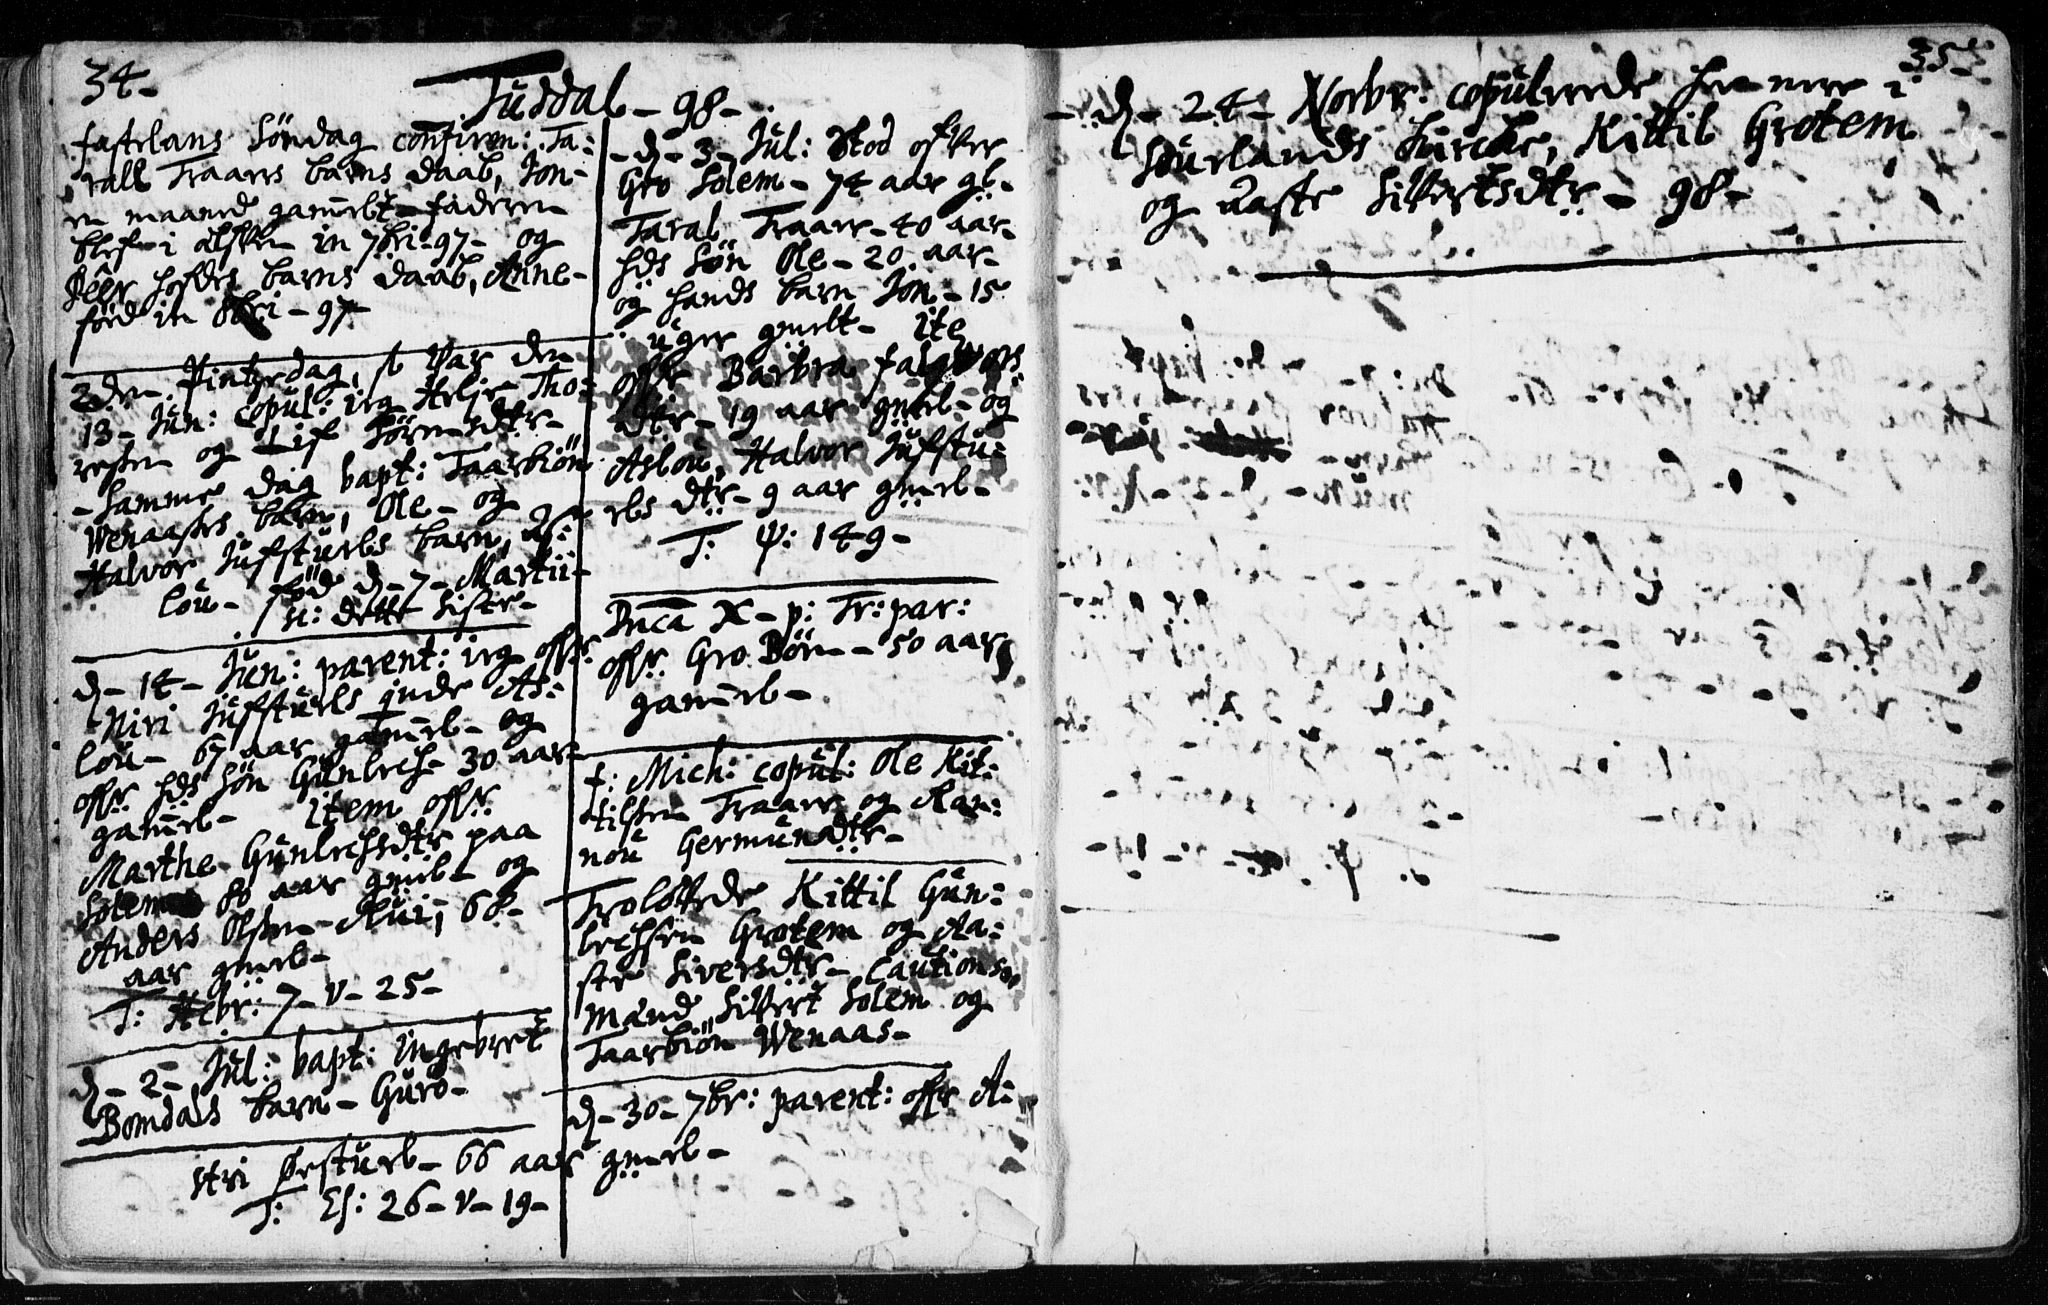 34-
Tuddal - 98 -
fastelans Söndag confirm: Ta:
rall Traans barns daab, Jon-
en maaned gammelt - faderen
blef i elfven in 7bri - 97 - og
Peer barns daab, Anne-
föed in 8bri - 97 -
2den Pintzedag, Var den
13 - Jun: copul: ieg Helje Tho:
resen og Lif Sörensdtr -
- Samme dag bapt: Taarbiön
Wenaases barn, Ole - og
Halvor Jufsturls barn, As:
lou - föd d - 7 - Martii -
N: dette Sistr -
d - 14 - Jun: parent: ieg offr
Niri Jufsturls inde As:
lou - 67 aar gammel - og
offr hds Sön Gunlech - 30 aar -
gammel - item offr
Marthe Gunlechsdtr paa
Solem 80 aar gmel - og
Anders Olsen Rui, 68 -
aar gmel -
T: Hebr: 7 - v - 25 -
d - 2 - Jul: bapt: ingebret
Bomdals barn - Guro -
- d - 3 - Jul: Stod ofver
Gro Solem - 74 aar gl -
Taral Traans - 40 aar -
hds Sön Ole - 20 aar -
og hands barn Jon - 15
uger gmelt - ite
offr Barbra falgvors
dtr - 19 aar gmel - og
Aslou, Halvor Jufstu:
rls dtr - 9 aar gmel -
T: ψ: 149 -
Dnca X - p: Tr: par:
offr Gro Börn - 50 aar
gammel -
f: Mich: copul: Ole Kit:
tilsen Traans og Ran:
nou Germundtr -
Trolofvede Kittil Gun:
lechsen Grotem og Aa:
ste Siversdtr - Cautions
mænd Sifvert Solem og
Taarbiön Wenaas -
d - 30 - 7br: parent: offr A:
stri Örsturl - 66 aar gmel -
T: Es: 26 - v - 19 -
35
- d - 24 - Novbr: copulerede i
Sourlands kircke, Kittil Grotem
og Aaste Sifvertsdtr - 98 -